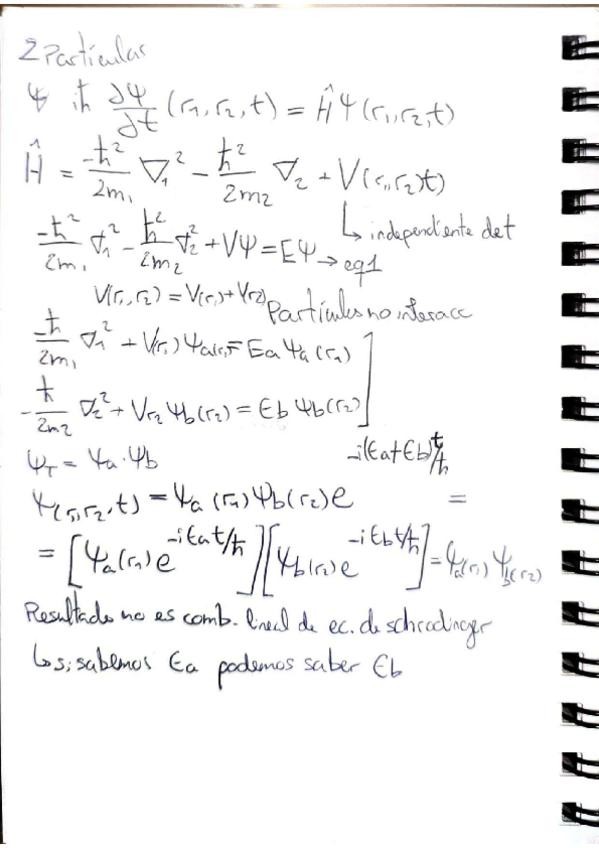 2 Particulas
iħ ∂Ψ/∂t (r₁, r₂, t) = Ĥ Ψ(r₁, r₂, t)
Ĥ = -ħ²/2m₁ ∇₁² - ħ²/2m₂ ∇₂ + V(r₁, r₂, t)
↳ independiente de t
-ħ²/2m₁ ∇₁² - ħ²/2m₂ ∇₂² + VΨ = EΨ → eq1
V(r₁, r₂) = V(r₁) + V(r₂) Partículas no interacc
-ħ/2m₁ ∇₁² + V(r₁) Ψa(r₁) = Ea Ψa(r₁)
-ħ/2m₂ ∇₂² + Vr₂ Ψb(r₂) = Eb Ψb(r₂)
Ψ_T = Ψa · Ψb
Ψ(r₁, r₂, t) = Ψa(r₁) Ψb(r₂) e^{-i(Ea+Eb)t/ħ} =
= [Ψa(r₁) e^{-iEat/ħ}][Ψb(r₂) e^{-iEbt/ħ}] = Ψa(r₁) Ψb(r₂)
Resultado no es comb. lineal de ec. de schrodinger
↳ si sabemos Ea podemos saber Eb